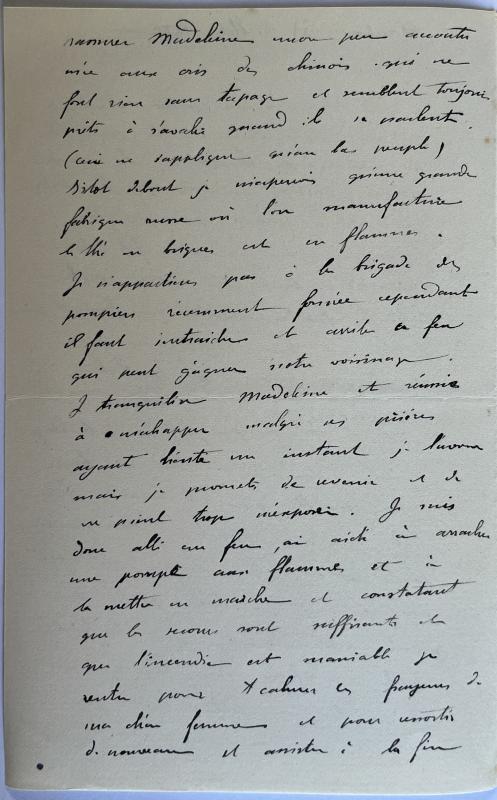 rassurer Madeleine encore peu accoutu
mée aux cris des chinois qui ne
font rien sans tapage et semblent toujours
prêts à s'avaler quand ils se parlent
(ceci ne s'applique qu'au bas peuple)
Sitôt debout je m'aperçois qu'une grande
fabrique russe où l'on manufacture
le thé en briques est en flammes.
Je n'appartiens pas à la brigade des
pompiers récemment formée cependant
il faut intraicher et arrêter ce feu
qui peut gagner notre voisinage.
Je tranquilise Madeleine et réussis
à m'échapper malgré ses prières
ayant hésité un instant je l'avoue
mais je promets de revenir et de
ne point trop m'exposer. Je suis
donc allé au feu, ai aidé à arracher
une pompe aux flammes et à
la mettre en marche et constatant
que les secours sont suffisants et
que l'incendie est maniable je
rentre pour calmer les frayeurs de
ma chère femme et pour ressortir
de nouveau et assister à la fin